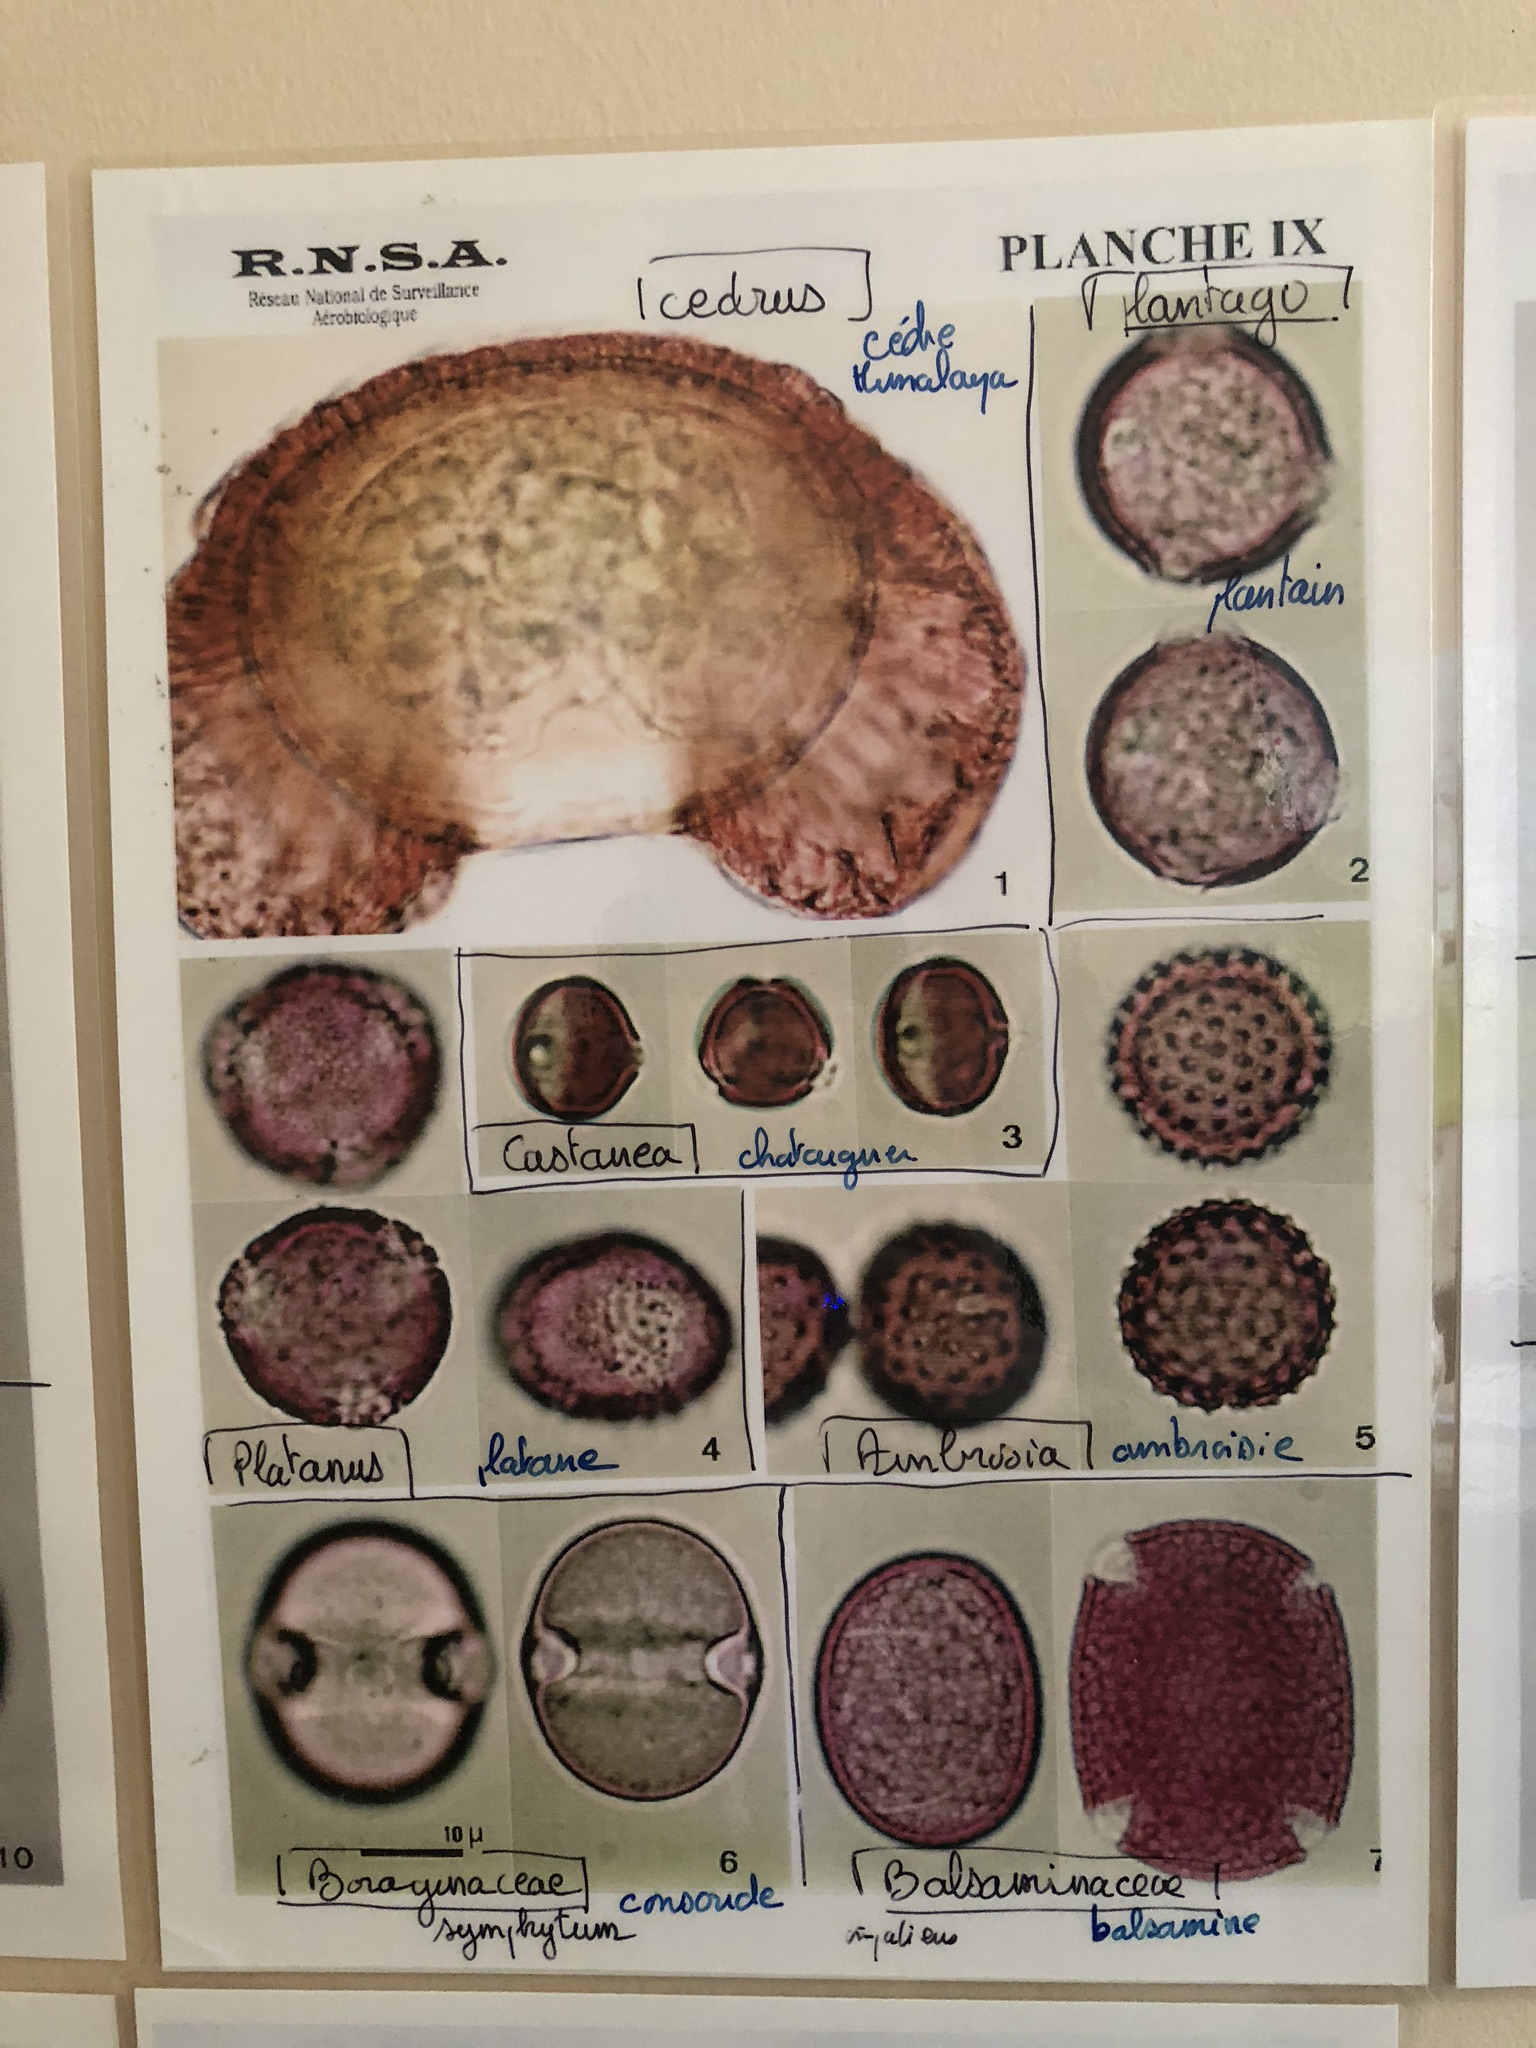 R.N.S.A.
Réseau National de Surveillance
Aérobiologique
PLANCHE IX
cedrus
cédre
Himalaya
Plantago
plantain
1
2
Castanea
chataigner
3
Platanus
platane
4
Ambrosia
ambroisie
5
10 µ
6
7
Boraginaceae
symphytum
consoude
Balsaminaceae
impatiens
balsamine
10